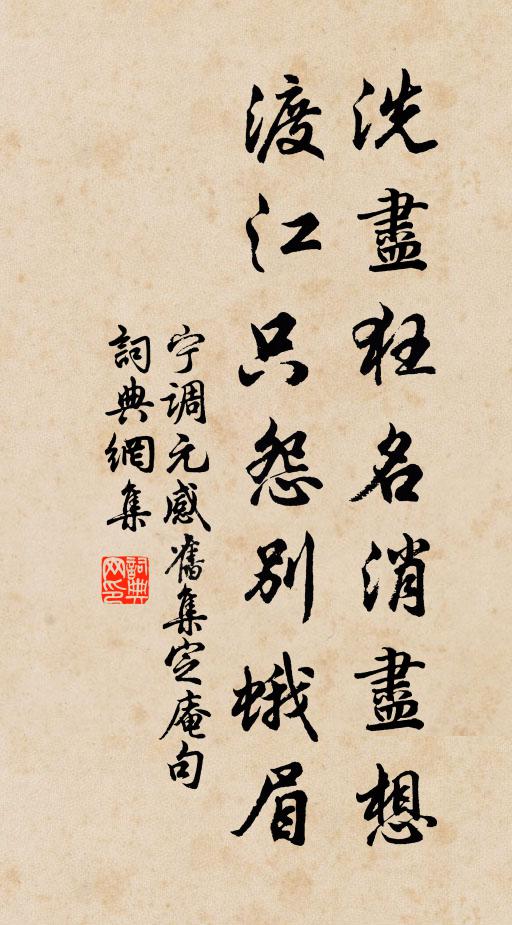 洗盡狂名消盡想
渡江只怨別蛾眉
宁調元感舊集定庵句
詞典網集
詞典網印